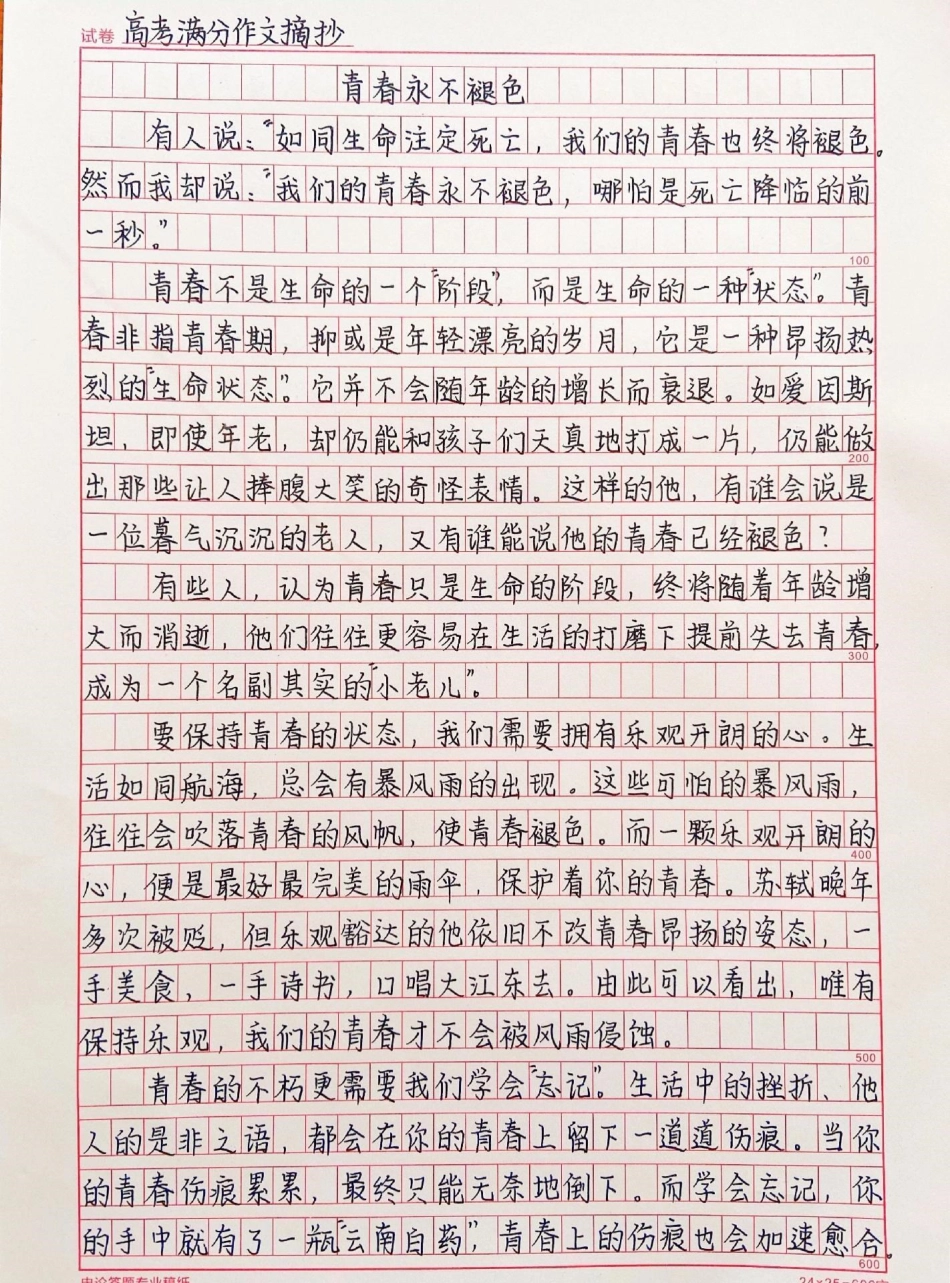 试卷 高考满分作文摘抄
青春永不褪色
有人说:“如同生命注定死亡，我们的青春也终将褪色。
然而我却说:“我们的青春永不褪色，哪怕是死亡降临的前
一秒。”
100
青春不是生命的一个“阶段”，而是生命的一种“状态”。青
春非指青春期，抑或是年轻漂亮的岁月，它是一种昂扬热
烈的“生命状态”。它并不会随年龄的增长而衰退。如爱因斯
坦，即使年老，却仍能和孩子们天真地打成一片，仍能做
200
出那些让人捧腹大笑的奇怪表情。这样的他，有谁会说是
一位暮气沉沉的老人，又有谁能说他的青春已经褪色？
有些人，认为青春只是生命的阶段，终将随着年龄增
大而消逝，他们往往更容易在生活的打磨下提前失去青春，
300
成为一个名副其实的“小老儿”。
要保持青春的状态，我们需要拥有乐观开朗的心。生
活如同航海，总会有暴风雨的出现。这些可怕的暴风雨，
往往会吹落青春的风帆，使青春褪色。而一颗乐观开朗的
400
心，便是最好最完美的雨伞，保护着你的青春。苏轼晚年
多次被贬，但乐观豁达的他依旧不改青春昂扬的姿态，一
手美食，一手诗书，口唱大江东去。由此可以看出，唯有
保持乐观，我们的青春才不会被风雨侵蚀。
500
青春的不朽更需要我们学会“忘记”。生活中的挫折、他
人的是非之语，都会在你的青春上留下一道道伤痕。当你
的青春伤痕累累，最终只能无奈地倒下。而学会忘记，你
的手中就有了一瓶“云南白药”，青春上的伤痕也会加速愈合。
600
申论答题专业稿纸